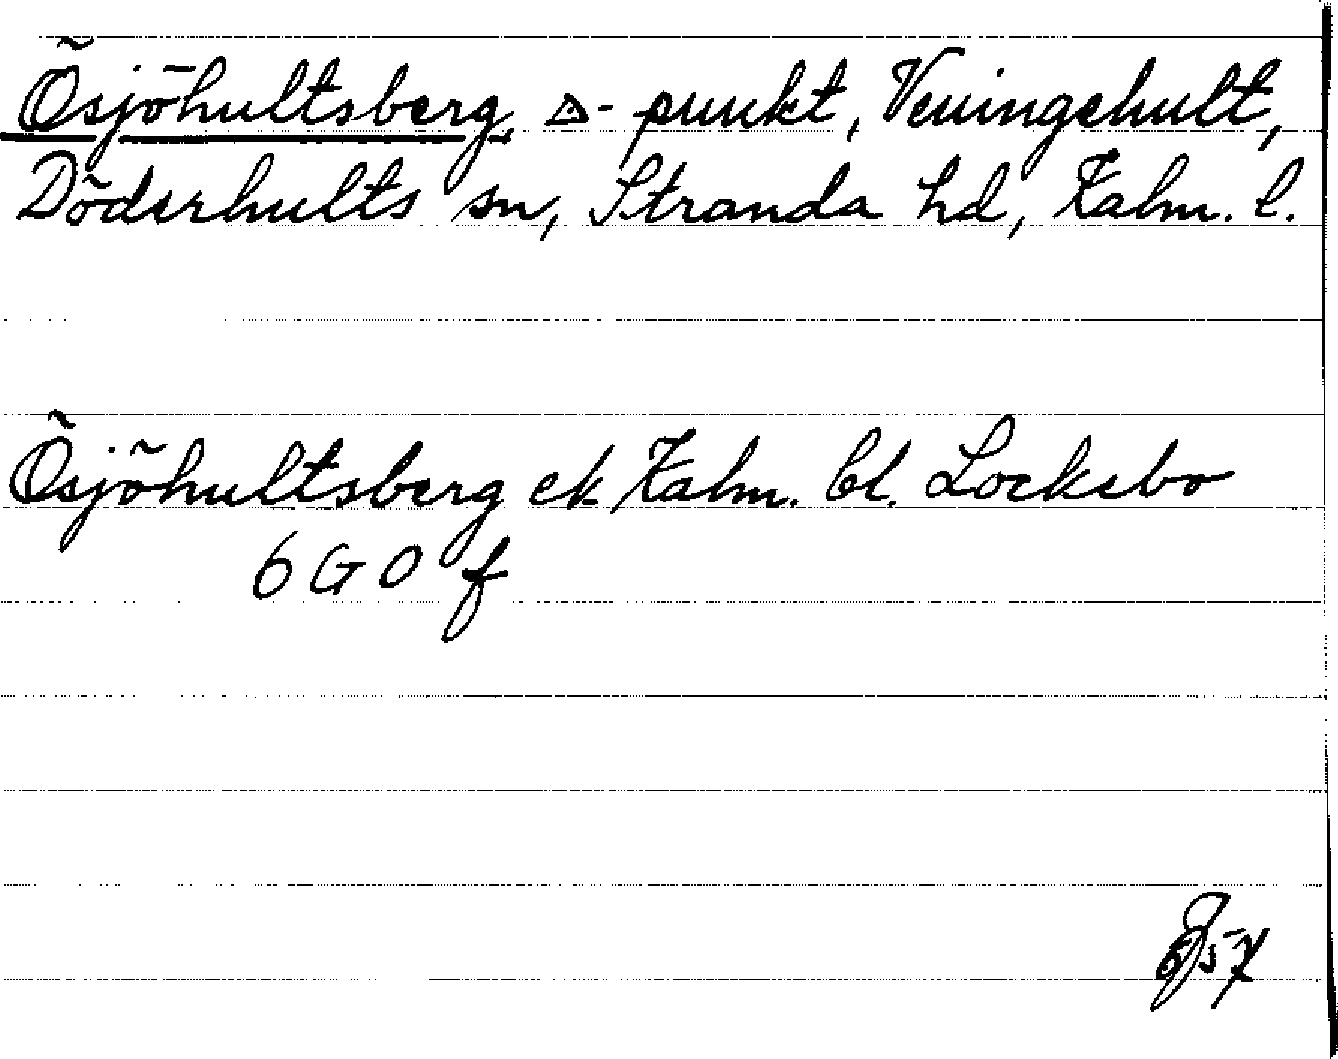 Ösjöhultsberg, △- punkt, Veningehult,
Döderhults sn, Stranda hd, Kalm. l.
Ösjöhultsberg ek Kalm. bl. Locksbo
6 G 0 f
57